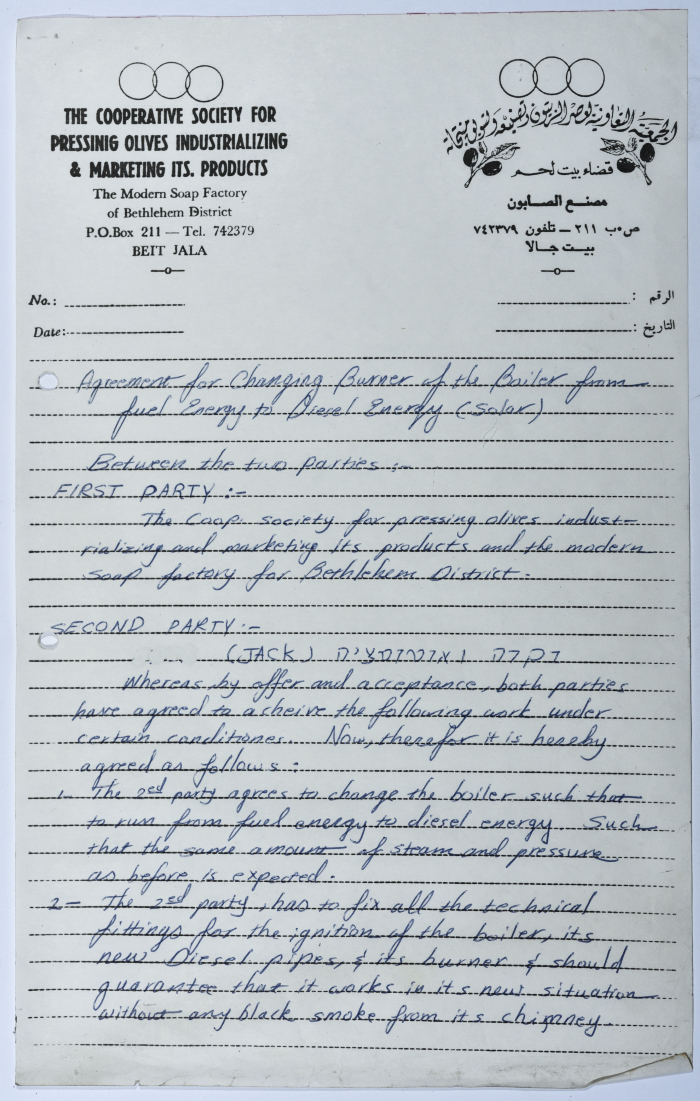 THE COOPERATIVE SOCIETY FOR
PRESSINIG OLIVES INDUSTRIALIZING
& MARKETING ITS. PRODUCTS
The Modern Soap Factory
of Bethlehem District
P.O.Box 211 — Tel. 742379
BEIT JALA
الجمعية التعاونية لعصر الزيتون وتصنيعه وتسويق منتجاته
قضاء بيت لحم
مصنع الصابون
ص٠ب ٢١١ — تلفون ٧٤٢٣٧٩
بيت جالا
No.:
الرقم :
Date:
التاريخ :
Agreement for Changing Burner of the Boiler from
fuel Energy to Diesel Energy (Solar)
Between the two parties :-
FIRST PARTY :-
The Coop. society for pressing olives indust-
rializing and marketing its products and the modern
soap factory for Bethlehem District.
SECOND PARTY :-
(JACK) ואוטומציה
Whereas, by offer and acceptance, both parties
have agreed to acheive the following work under
certain conditiones. Now, therefor it is hereby
agreed as follows :
1- The 2nd party agrees to change the boiler such that
to run from fuel energy to diesel energy. Such
that the same amount of steam and pressure
as before is expected.
2- The 2nd party, has to fix all the technical
fittings for the ignition of the boiler, its
new Diesel pipes, & its burner & should
guarantee that it works in it's new situation
without any black smoke from its chimney.